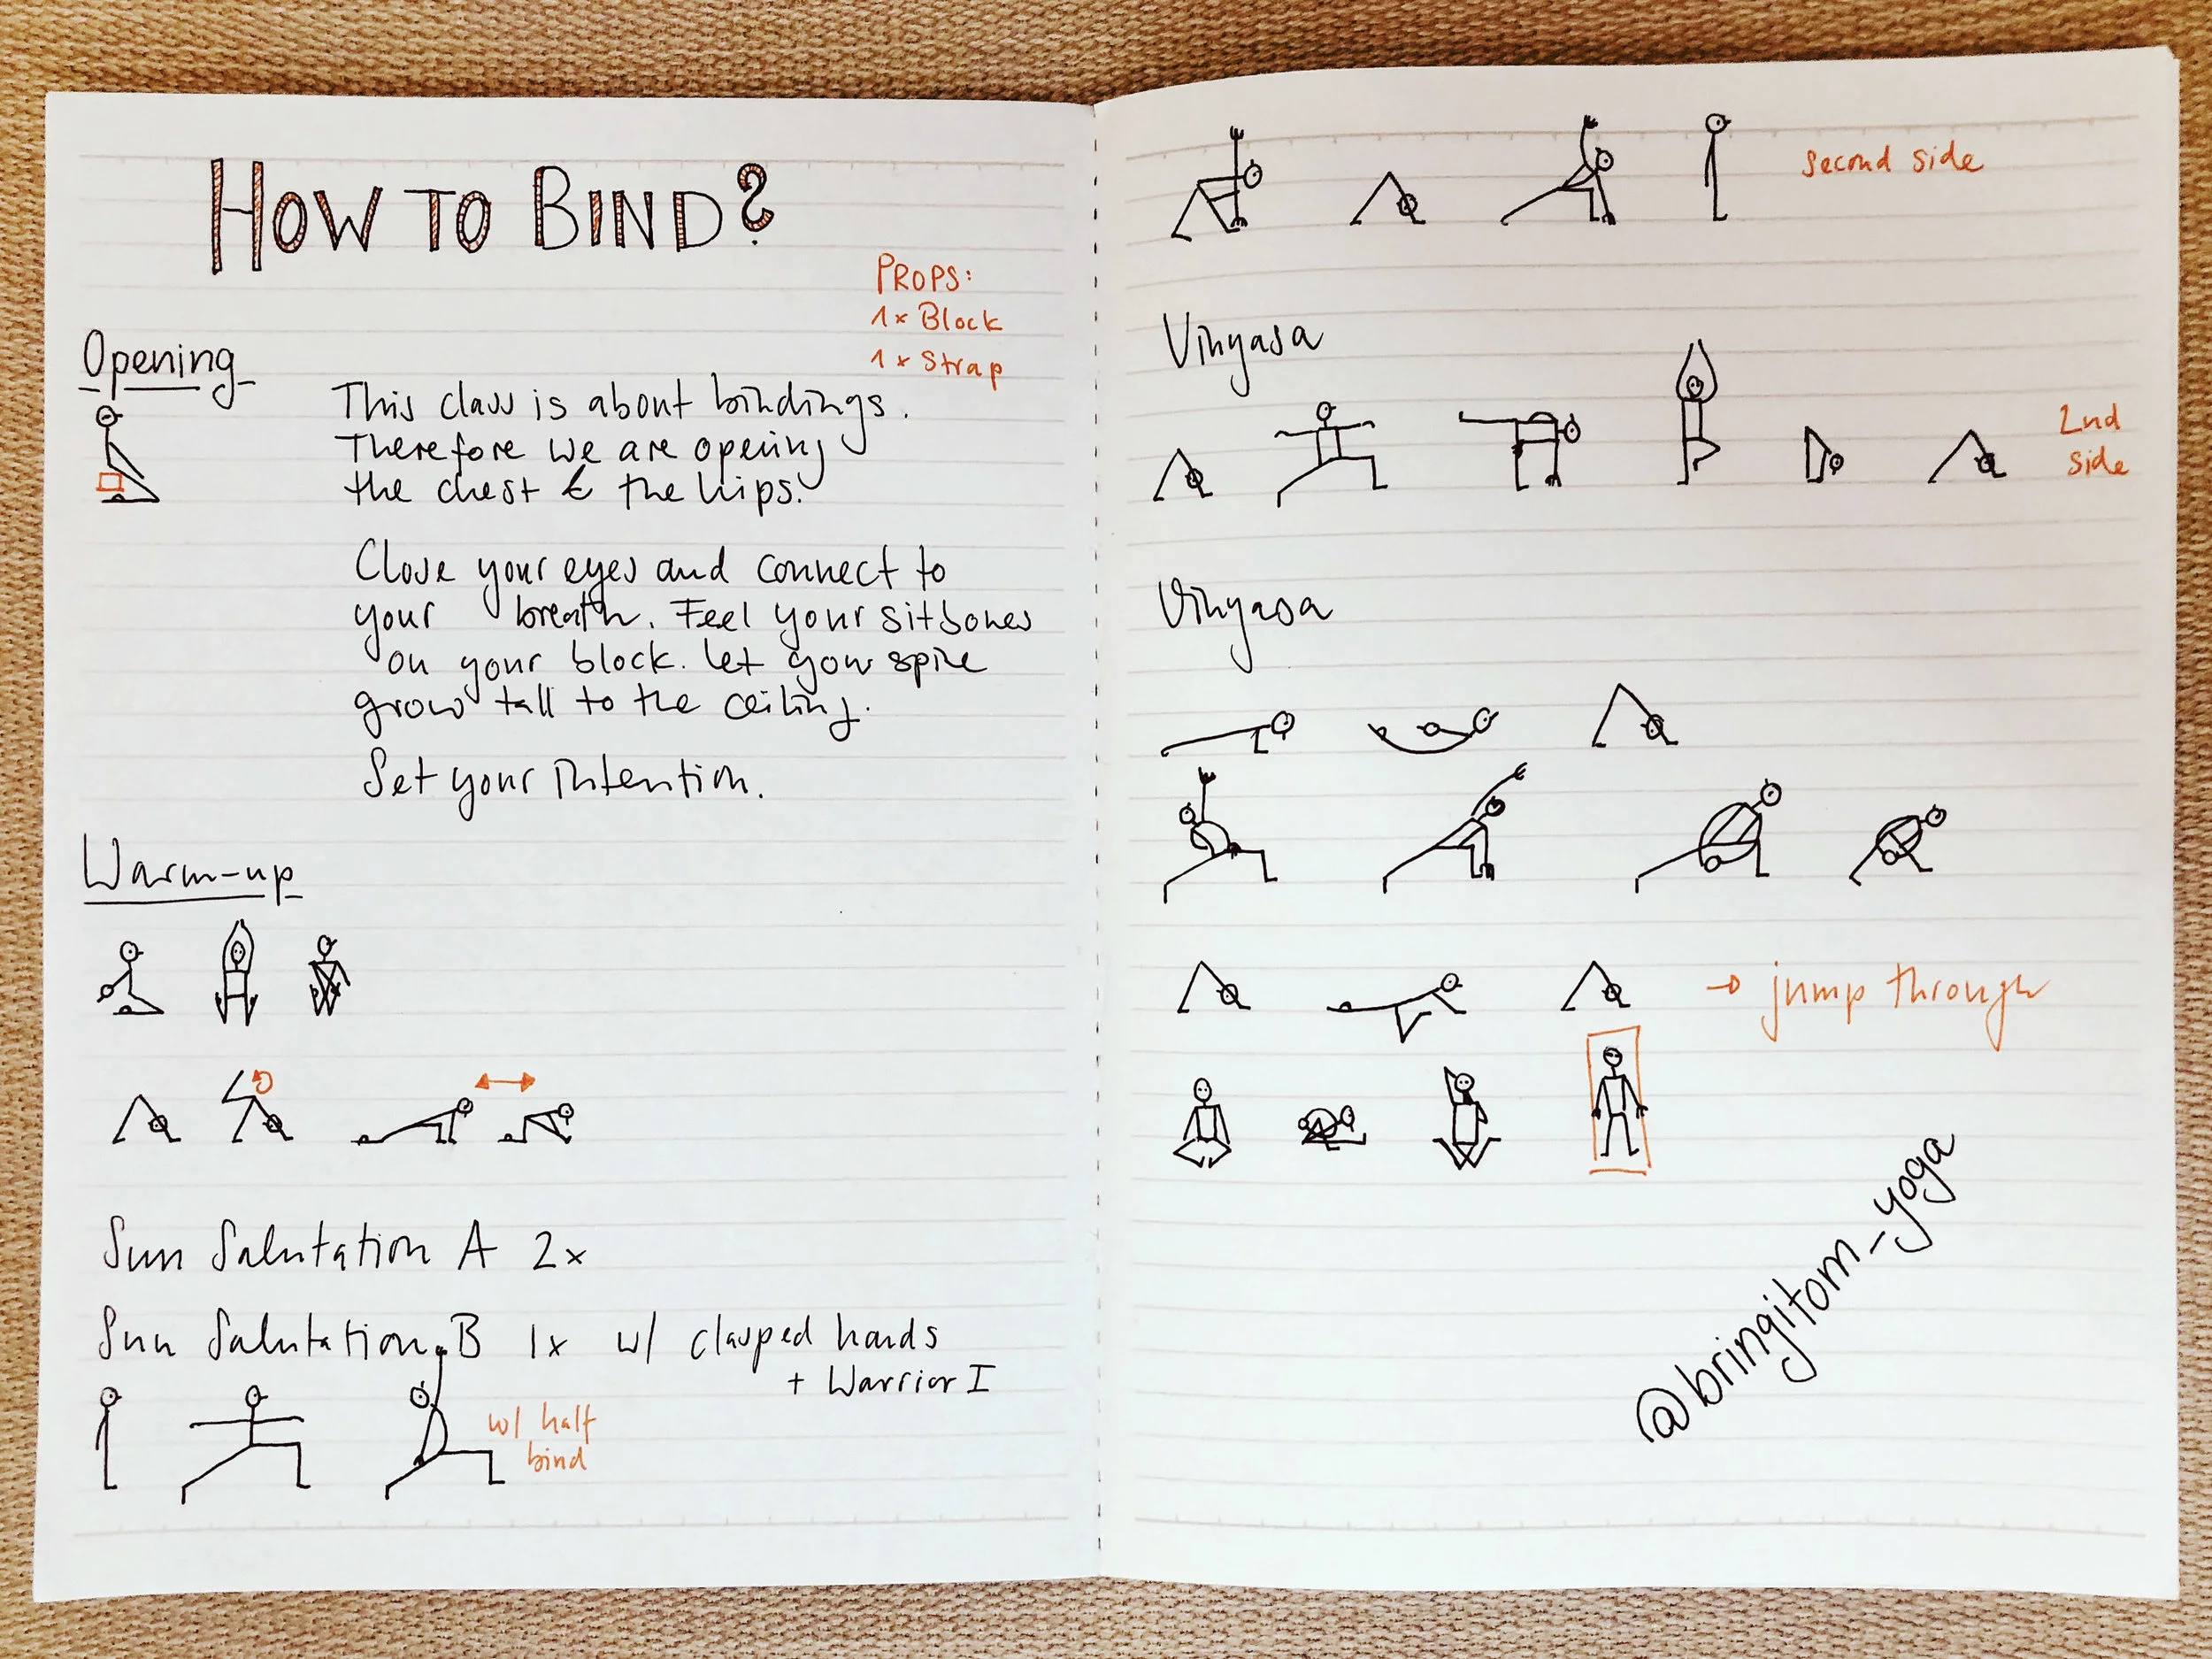 HOW TO BIND?
PROPS:
1x Block
1x Strap
Opening
This class is about bindings.
Therefore we are opening
the chest & the hips.
Close your eyes and connect to
your breath. Feel your sitbones
on your block. Let your spine
grow tall to the ceiling.
Set your intention.
Warm-up
Sun Salutation A 2x
Sun Salutation B 1x w/ clasped hands
+ Warrior I
w/ half
bind
second side
Vinyasa
2nd
side
Vinyasa
→ jump through
@bringitom_yoga